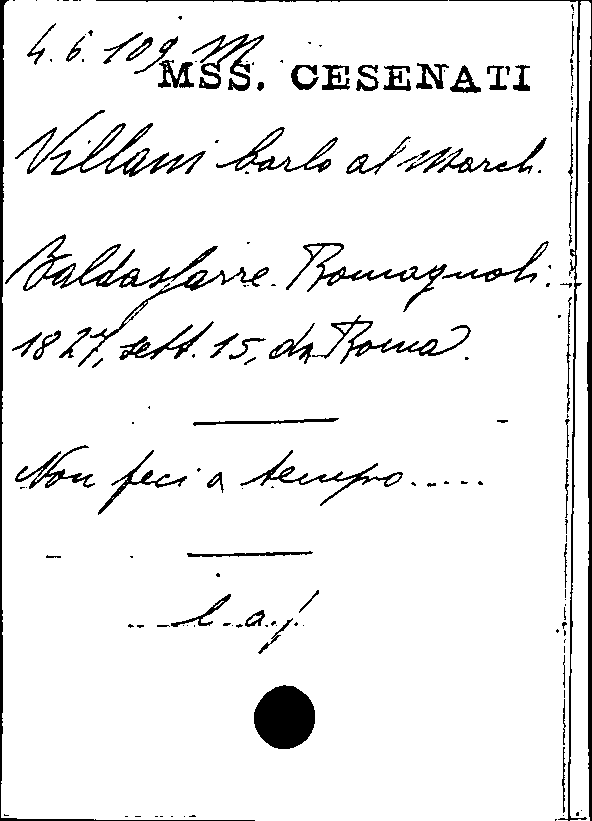 4. 6. 109 M
MSS. CESENATI
Villani Carlo al March.
Baldassarre Romagnoli.
1827, sett. 15, da Roma.
Non feci a tempo.....
l. a. f.